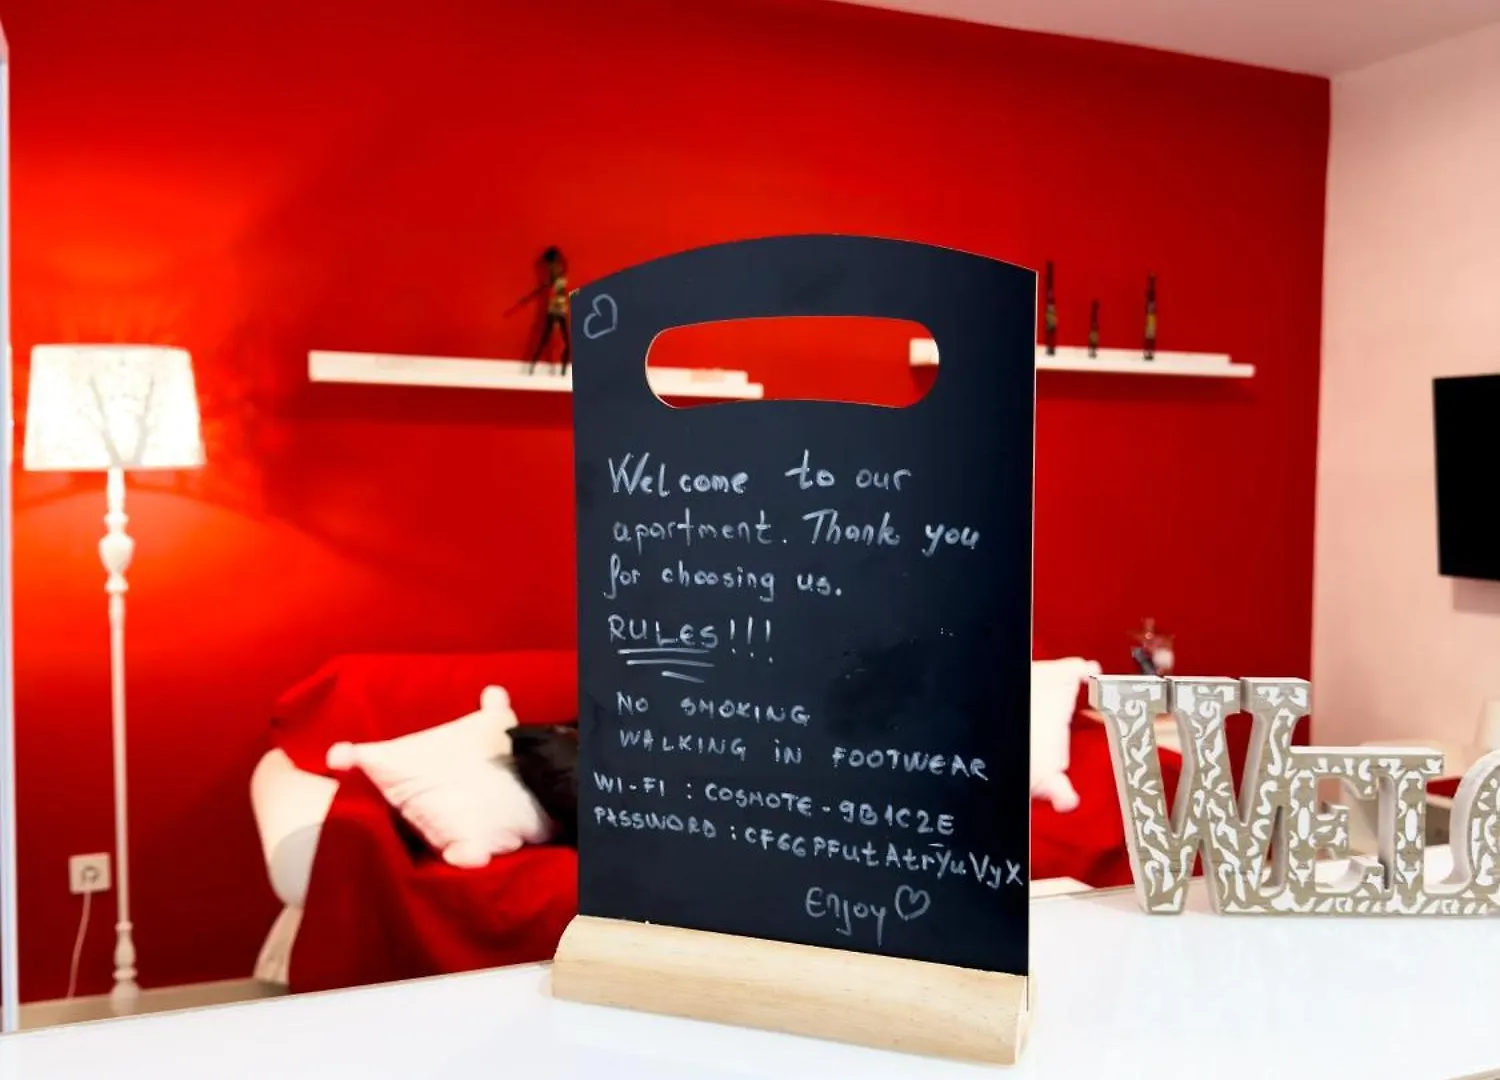 Welcome to our
apartment. Thank you
for choosing us.
RULES!!!
NO SMOKING
WALKING IN FOOTWEAR
WI-FI : COSMOTE-9B1C2E
PASSWORD : CF66PFUtAtrYuVyX
Enjoy
WELC